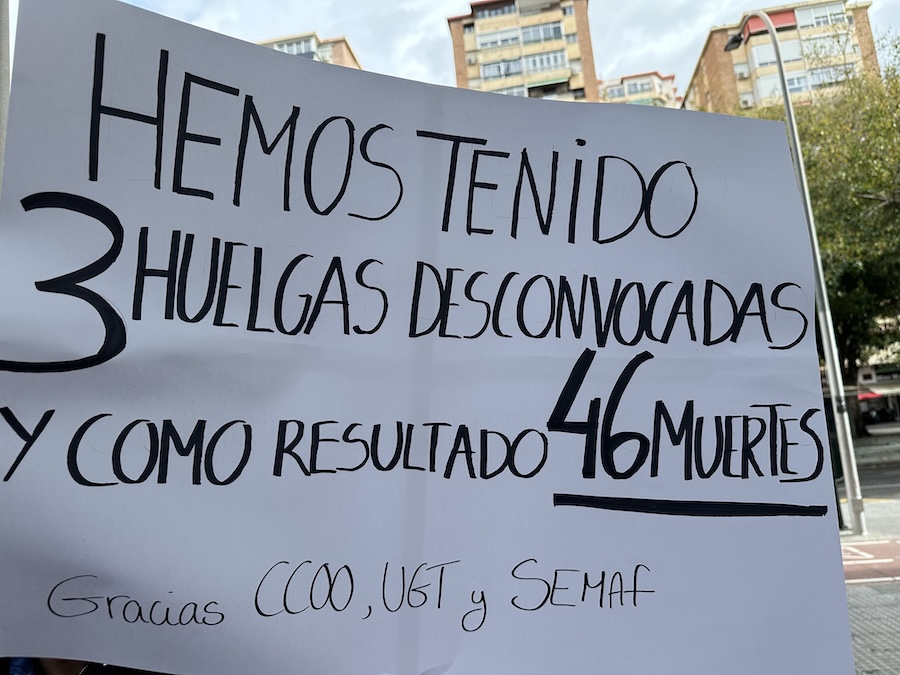 HEMOS TENiDO
3 HUELGAS DESCONVOCADAS
Y COMO RESULTADO 46 MUERTES
Gracias CCOO, UGT y SEMAF